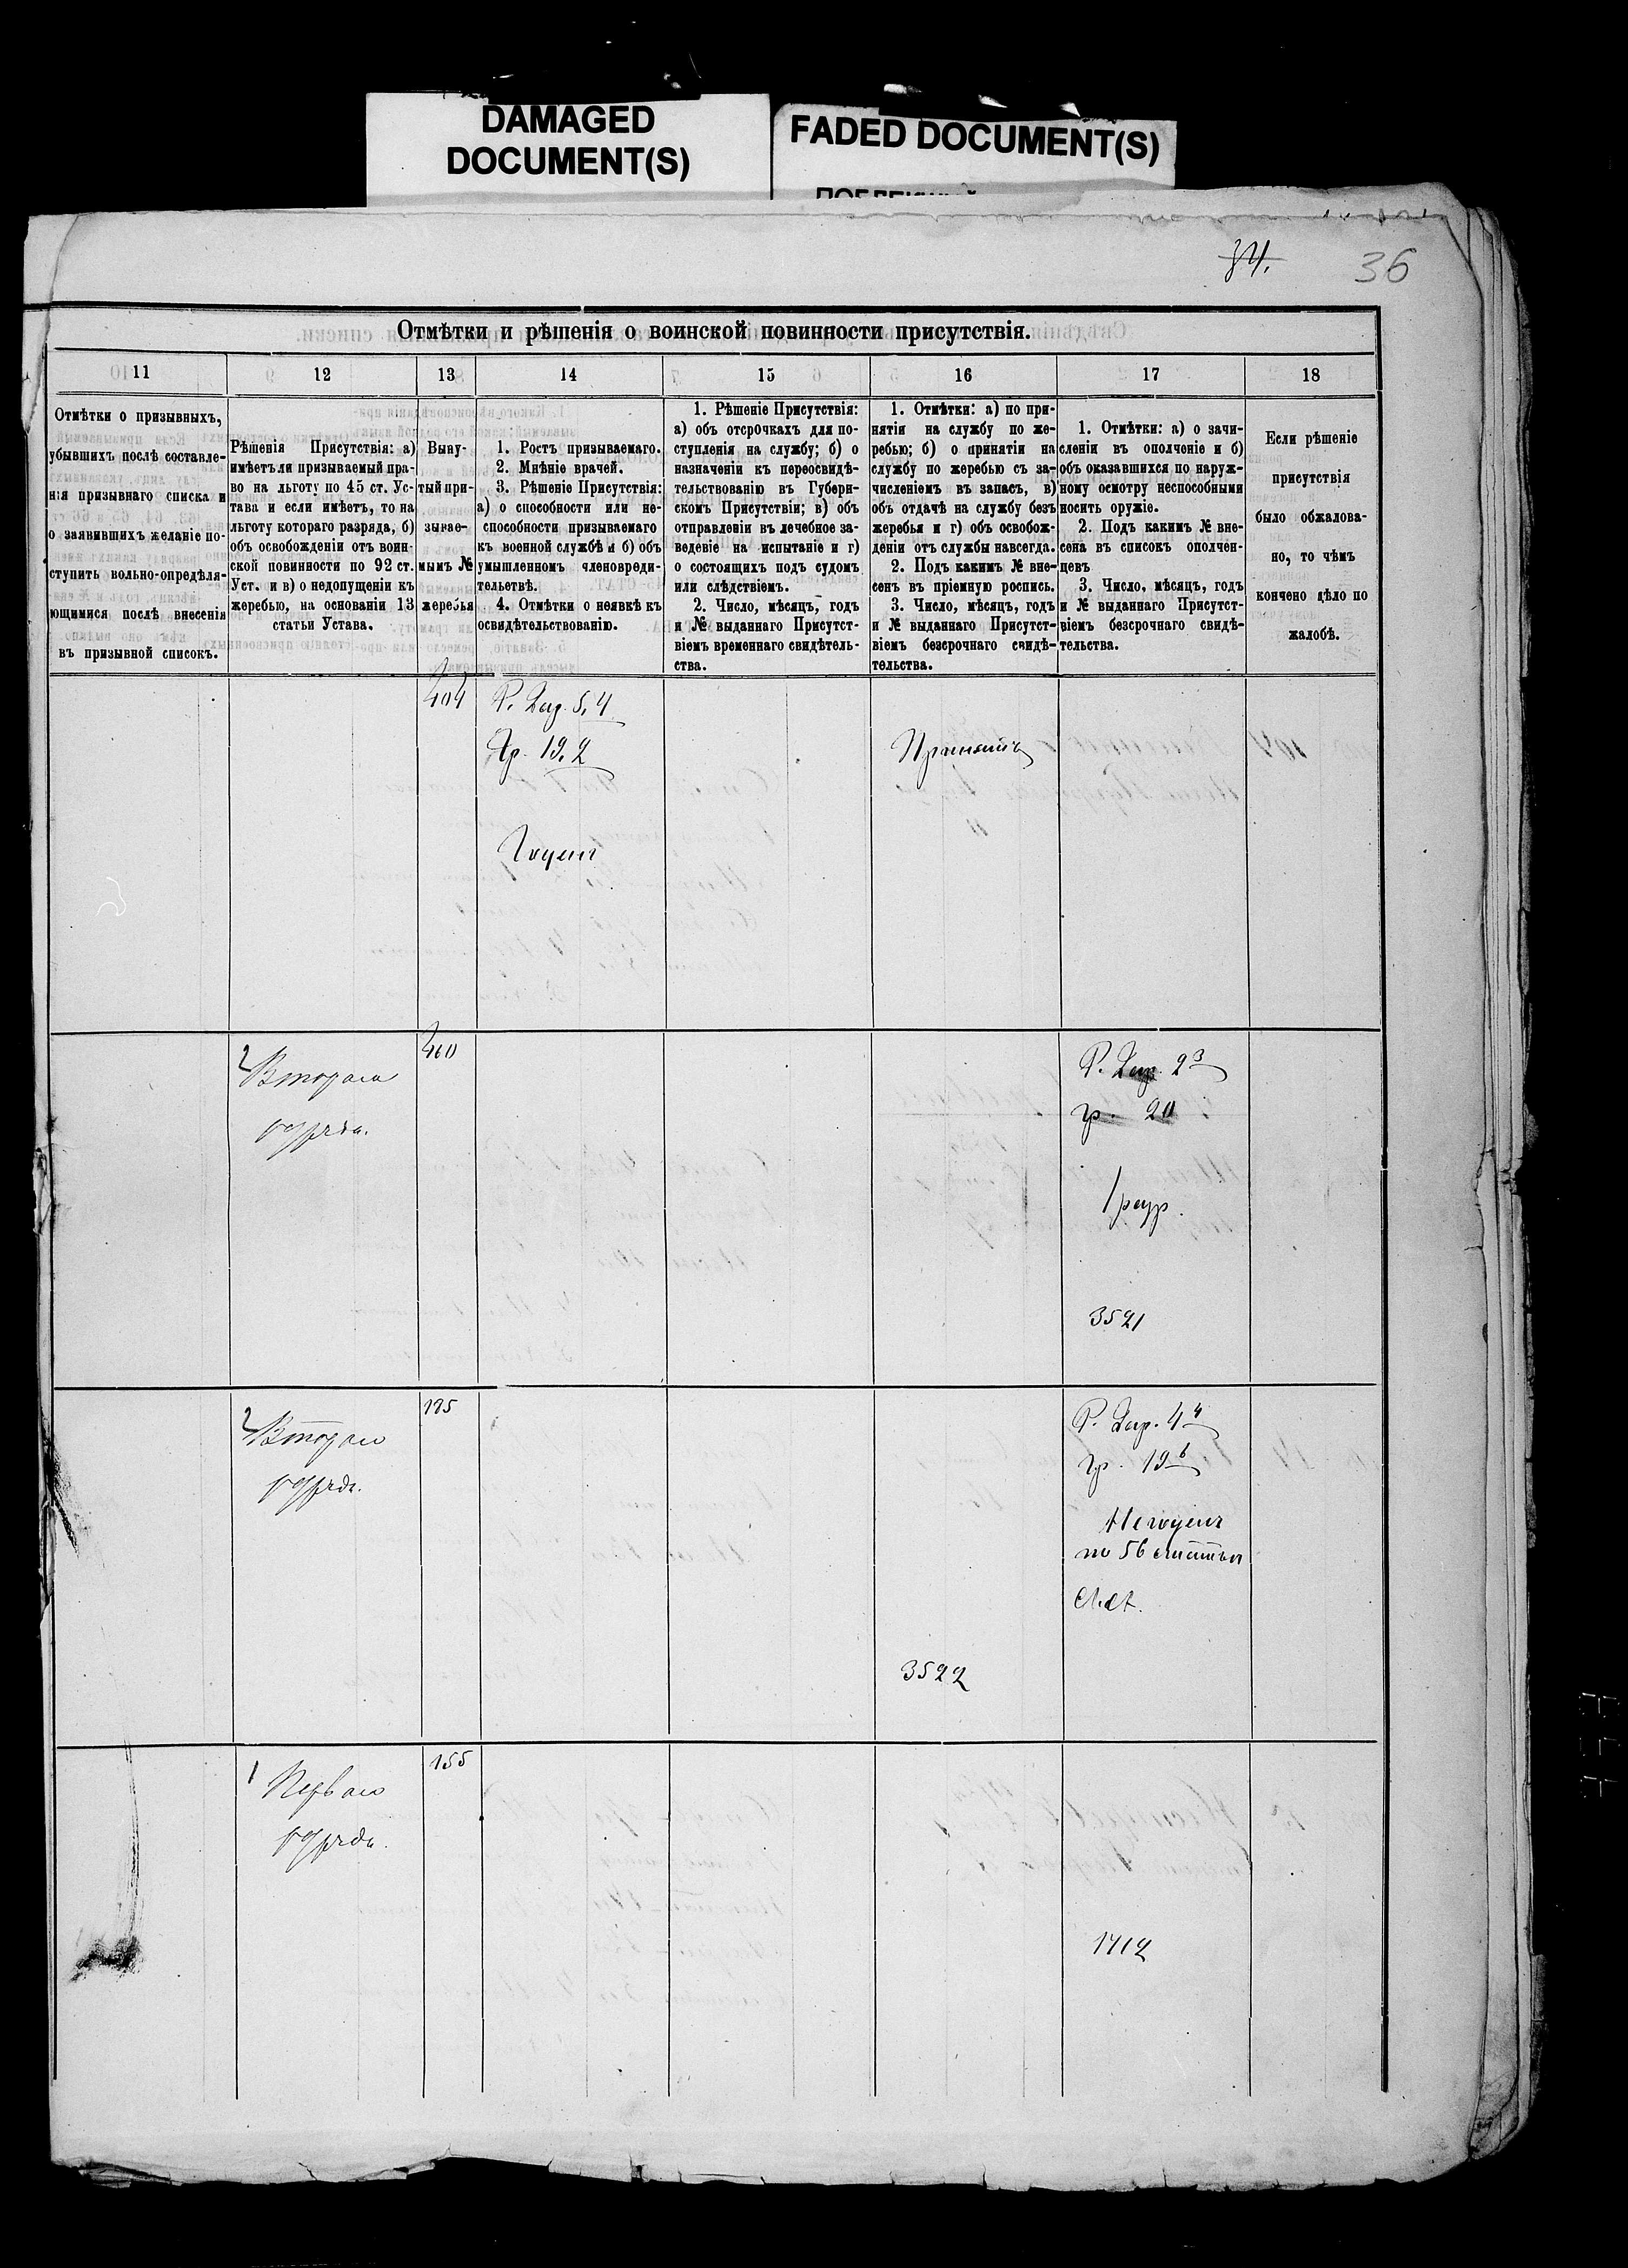 DAMAGED
DOCUMENT(S)
FADED DOCUMENT(S)
34.
36
Отмѣтки и рѣшенія о воинской повинности присутствія.
11
12
13
14
15
16
17
18
Отмѣтки о призывныхъ,
убывшихъ послѣ составле-
нія призывнаго списка и
о заявившихъ желаніе по-
ступить вольно-опредѣля-
ющимися послѣ внесенія
въ призывной списокъ.
Рѣшенія Присутствія: а)
имѣетъ ли призываемый пра-
во на льготу по 45 ст. Ус-
тава и если имѣетъ, то на
льготу котораго разряда, б)
объ освобожденіи отъ воин-
ской повинности по 92 ст.
Уст. и в) о недопущеніи къ
жеребью, на основаніи 13
статьи Устава.
Выну-
тый при-
зывае-
мымъ №
жеребья
1. Ростъ призываемаго.
2. Мнѣніе врачей.
3. Рѣшеніе Присутствія:
а) о способности или не-
способности призываемаго
къ военной службѣ и б) объ
умышленномъ членовреди-
тельетвѣ.
4. Отмѣтки о неявкѣ къ
освидѣтельствованію.
1. Рѣшеніе Присутствія:
а) объ отсрочкахъ для по-
ступленія на службу; б) о
назначеніи къ переосвидѣ-
тельствованію въ Губерн-
скомъ Присутствіи; в) объ
отправленіи въ лечебное за-
веденіе на испытаніе и г)
о состоящихъ подъ судомъ
или слѣдствіемъ.
2. Число, мѣсяцъ, годъ
и № выданнаго Присутст-
віемъ временнаго свидѣтель-
ства.
1. Отмѣтки: а) по при-
нятіи на службу по же-
ребью; б) о принятіи на
службу по жеребью съ за-
численіемъ въ запасъ, в)
объ отдачѣ на службу безъ
жеребья и г) объ освобож-
деніи отъ службы навсегда.
2. Подъ какимъ № вне-
сенъ въ пріемную роспись.
3. Число, мѣсяцъ, годъ
и № выданнаго Присутст-
віемъ безсрочнаго свидѣ-
тельства.
1. Отмѣтки: а) о зачи-
сленіи въ ополченіе и б)
объ оказавшихся по наруж-
ному осмотру неспособными
носить оружіе.
2. Подъ какимъ № вне-
сена въ списокъ ополчен-
цевъ
3. Число, мѣсяцъ, годъ
и № выданнаго Присутст-
віемъ безсрочнаго свидѣ-
тельства.
Если рѣшеніе
присутствія
было обжалова-
но, то чѣмъ
кончено дѣло по
жалобѣ.
404
Р. 2ар. 5, 4
Гр. 19, 2
Годенъ
Принятъ
2 Втораго
разряда.
460
Р. 2ар. 2 3
гр. 20
1 разр.
3521
2 Втораго
разряда.
185
Р. 2ар. 4 4
гр. 19 6
Негоденъ
по 56 статьи
3522
1 Перваго
разряда.
155
1712